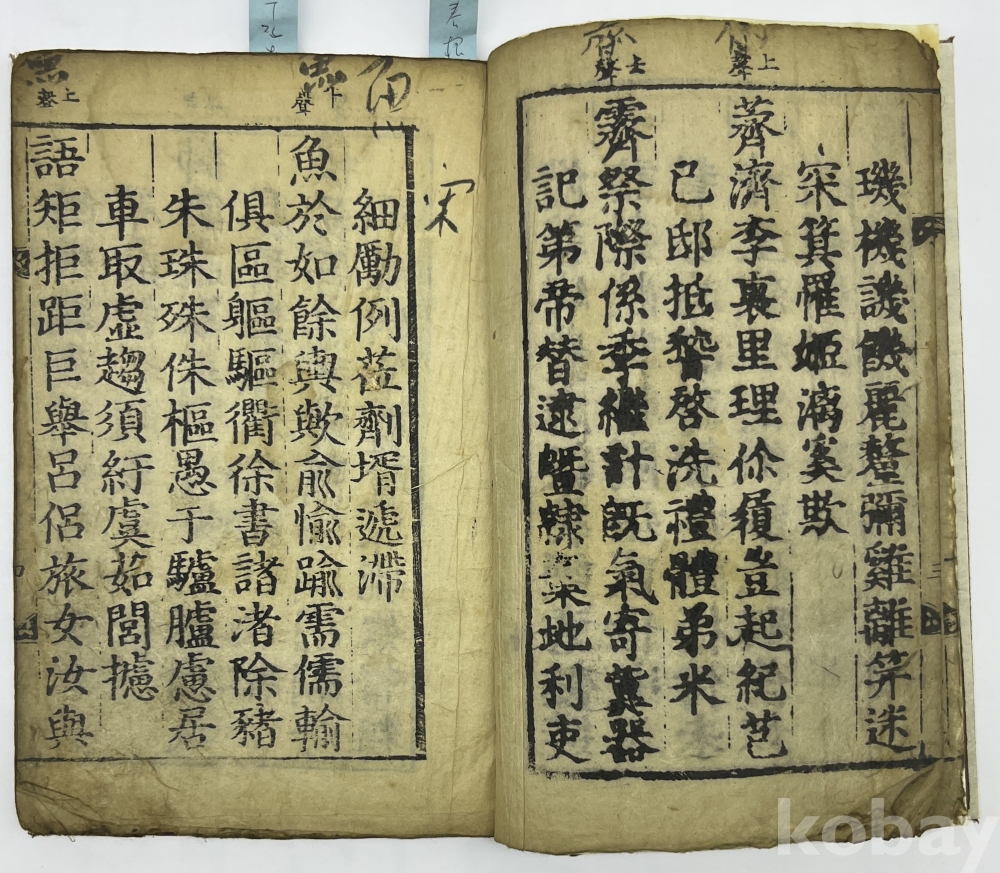 璣機譏饑麗釐彌雞離笄迷
罙箕罹姬漓奚欺
薺濟李裏里理你履豈起紀芑
己邸抵啓洗禮體弟米
霽祭際係季繼計旣氣寄冀器
記第帝替逮曁隸地利吏
上聲
上聲
宋
細勵例蒞劑壻遞滯
魚於如餘輿歟兪愉踰需儒輸
俱區軀驅衢徐書諸渚除豬
朱珠殊侏樞愚于驢臚慮居
車取虛趨須紆虞茹閭攄
語矩拒距巨舉呂侶旅女汝與
上聲
kobay